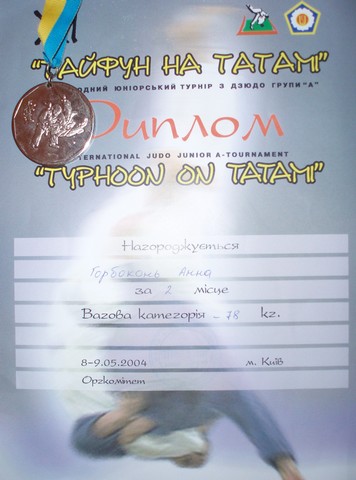 "ТАЙФУН НА ТАТАМІ"
ОДНИЙ ЮНІОРСЬКИЙ ТУРНІР З ДЗЮДО ГРУПИ "А"
Диплом
TERNATIONAL JUDO JUNIOR A-TOURNAMENT
"TYPHOON ON TATAMI"
Нагороджується
Горбокань Анна
за 2 місце
Вагова категорія – 78 кг.
8-9.05.2004 м. Київ
Оргкомітет